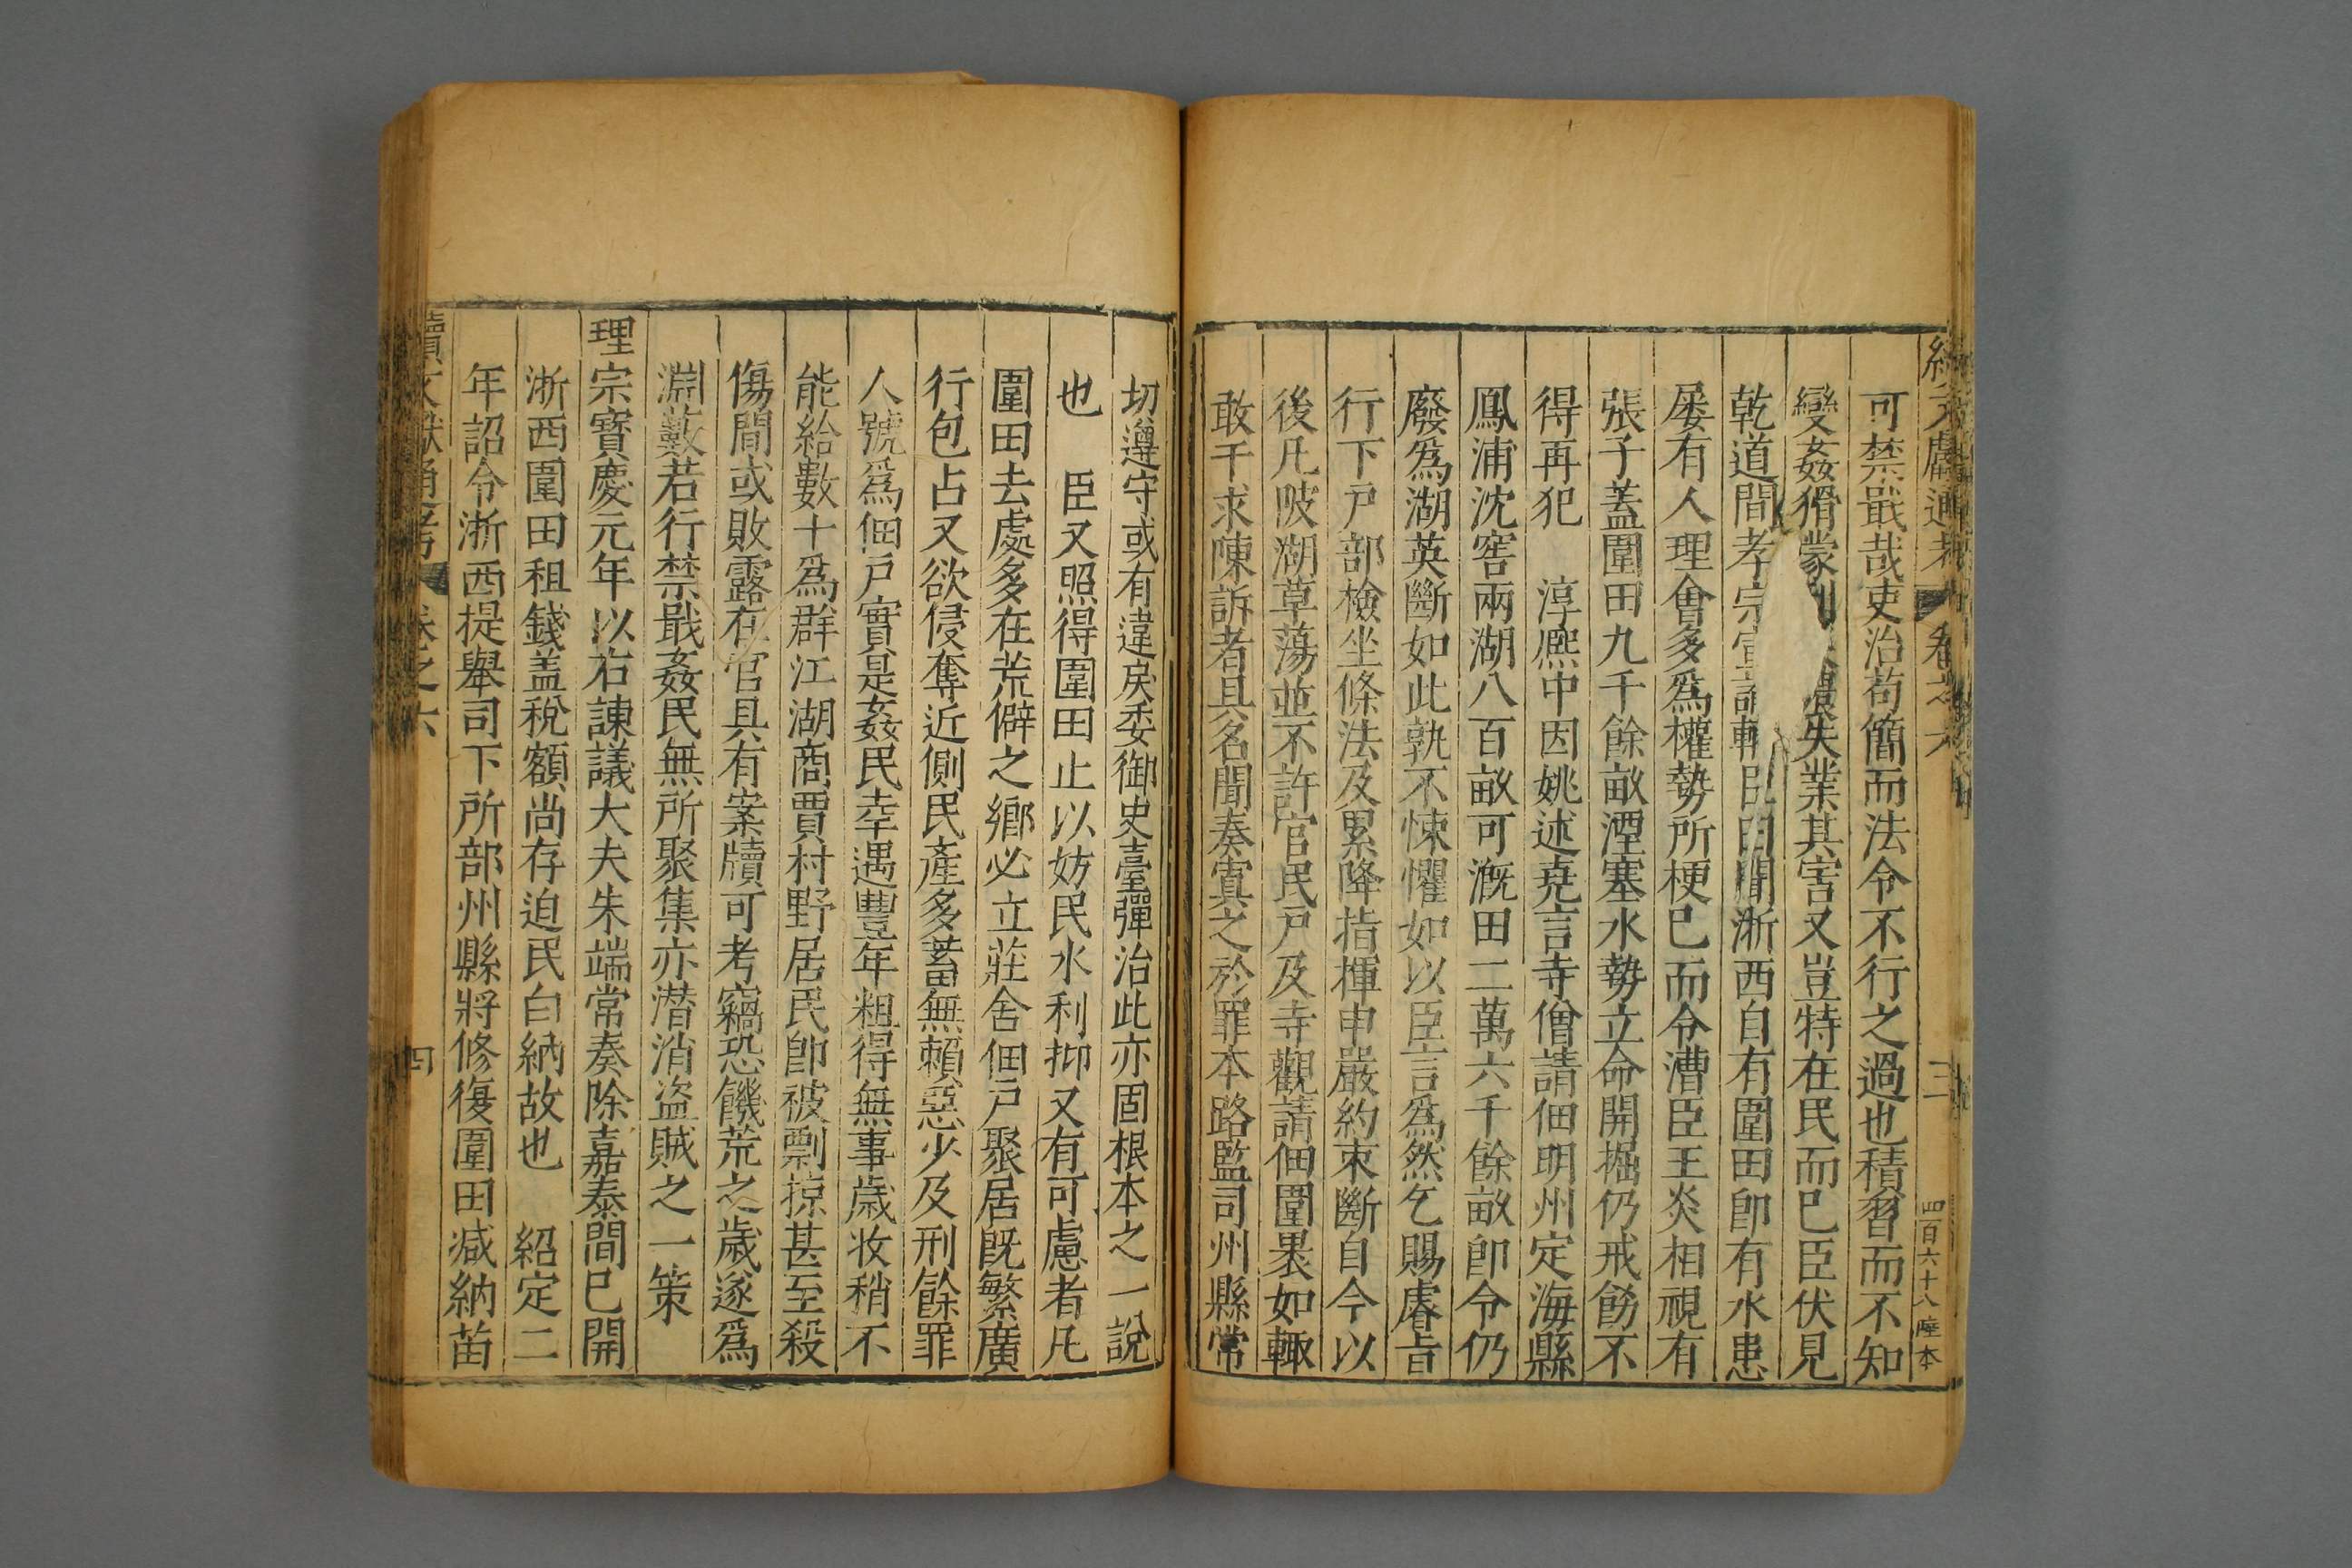 續文獻通考 卷之六 三 四百六十八 陸本
可禁戢哉吏治苟簡而法令不行之過也積習而不知
變姦猾蒙利 失業其害又豈特在民而已臣伏見
乾道間孝宗宣 臣聞浙西自有圍田卽有水患
屡有人理會多爲權勢所梗已而令漕臣王炎相視有
張子蓋圍田九千餘畝湮塞水勢立命開掘仍戒飭不
得再犯　淳熈中因姚述堯言寺僧請佃明州定海縣
鳳浦沈窖兩湖八百畝可溉田二萬六千餘畝卽令仍
廢爲湖英斷如此孰不悚懼如以臣言爲然乞賜睿旨
行下戸部檢坐條法及累降指揮申嚴約束斷自今以
後凡陂湖草蕩並不許官民戸及寺觀請佃圍裹如輙
敢干求陳訴者具名聞奏寘之於罪本路監司州縣常
切遵守或有違戾委御史臺彈治此亦固根本之一說
也　臣又照得圍田止以妨民水利抑又有可慮者凡
圍田去處多在荒僻之鄉必立莊舍佃戸聚居旣繁廣
行包占又欲侵奪近側民產多蓄無賴惡少及刑餘罪
人號爲佃戸實是姦民幸遇豐年粗得無事歲收稍不
能給數十爲群江湖商賈村野居民卽被剽掠甚至殺
傷間或敗露在官具有案牘可考竊恐饑荒之歲遂爲
淵藪若行禁戢姦民無所聚集亦潜消盗賊之一策
理宗寳慶元年以右諫議大夫朱端常奏除嘉泰間已開
浙西圍田租錢盖稅額尚存迫民白納故也　紹定二
年詔令浙西提舉司下所部州縣將修復圍田减納苗
續文獻通考 卷之六 四